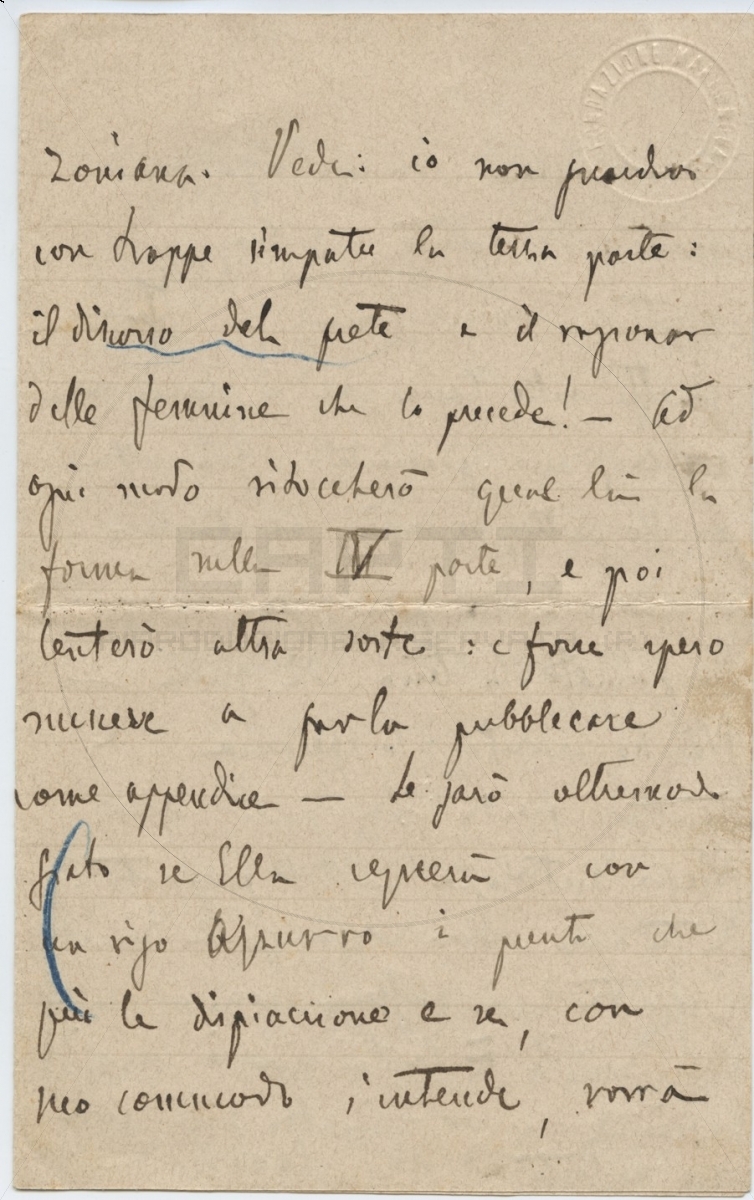 zoniana. Vede: io non guardo
con troppe simpatie la terza parte:
il discorso del prete e il ragionar
delle femmine che lo precede! — Ad
ogni modo ritoccherò qua e là la
forma nella IV parte, e poi
tenterò altra sorte: e forse spero
riuscire a farla pubblicare
come appendice — Le sarò oltremodo
grato se Ella segnerà con
un rigo azzurro i punti che
più le dispiacciono e se, con
suo commodo s'intende, vorrà